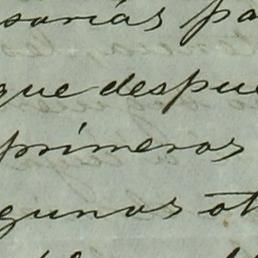 sarias pa
que despue
primeros
gunas ot